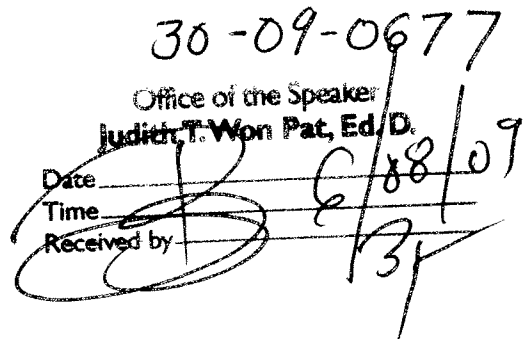 30-09-0677
Office of the Speaker
Judith T. Won Pat, Ed. D.
Date 6/08/09
Time
Received by